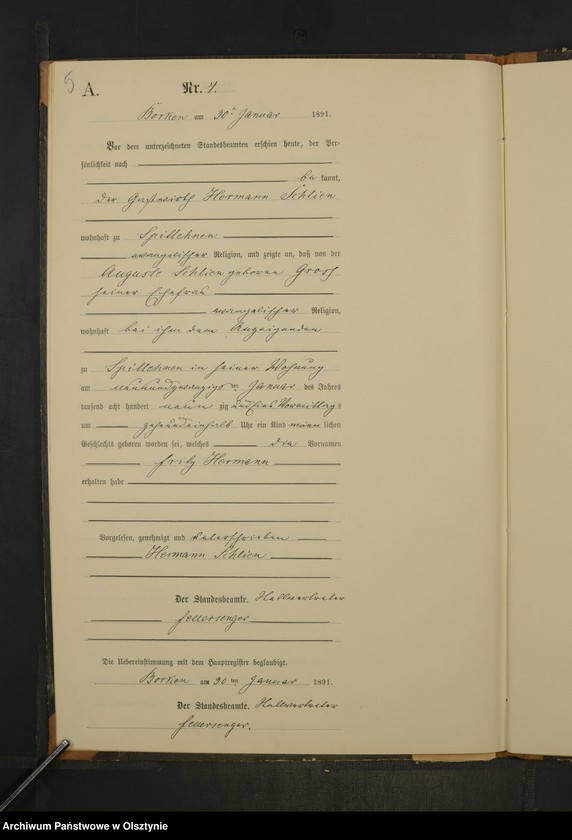 5
A.
Nr. 4.
Borken am 30n Januar 1891.
Vor dem unterzeichneten Standesbeamten erschien heute, der Per-
sönlichkeit nach
be kannt,
der Gastwirth Hermann Schlien
wohnhaft zu Spillehnen
evangelischer Religion, und zeigte an, daß von der
Auguste Schlien geborene Gross
seiner Ehefrau
evangelischer Religion,
wohnhaft bei ihm dem Anzeigenden
zu Spillehnen in seiner Wohnung
am neunundzwanzigsten Januar des Jahres
tausend acht hundert neun zig und eins Vormittags
um Uhr ein Kind männlichen
Geschlechts geboren worden sei, welches die Vornamen
Fritz Hermann
erhalten habe
Vorgelesen, genehmigt und unterschrieben
Hermann Schlien
Der Standesbeamte.
Feuersenger
Die Uebereinstimmung mit dem Hauptregister beglaubigt.
Borken am 30ten Januar 1891.
Der Standesbeamte.
Feuersenger.
Archiwum Państwowe w Olsztynie